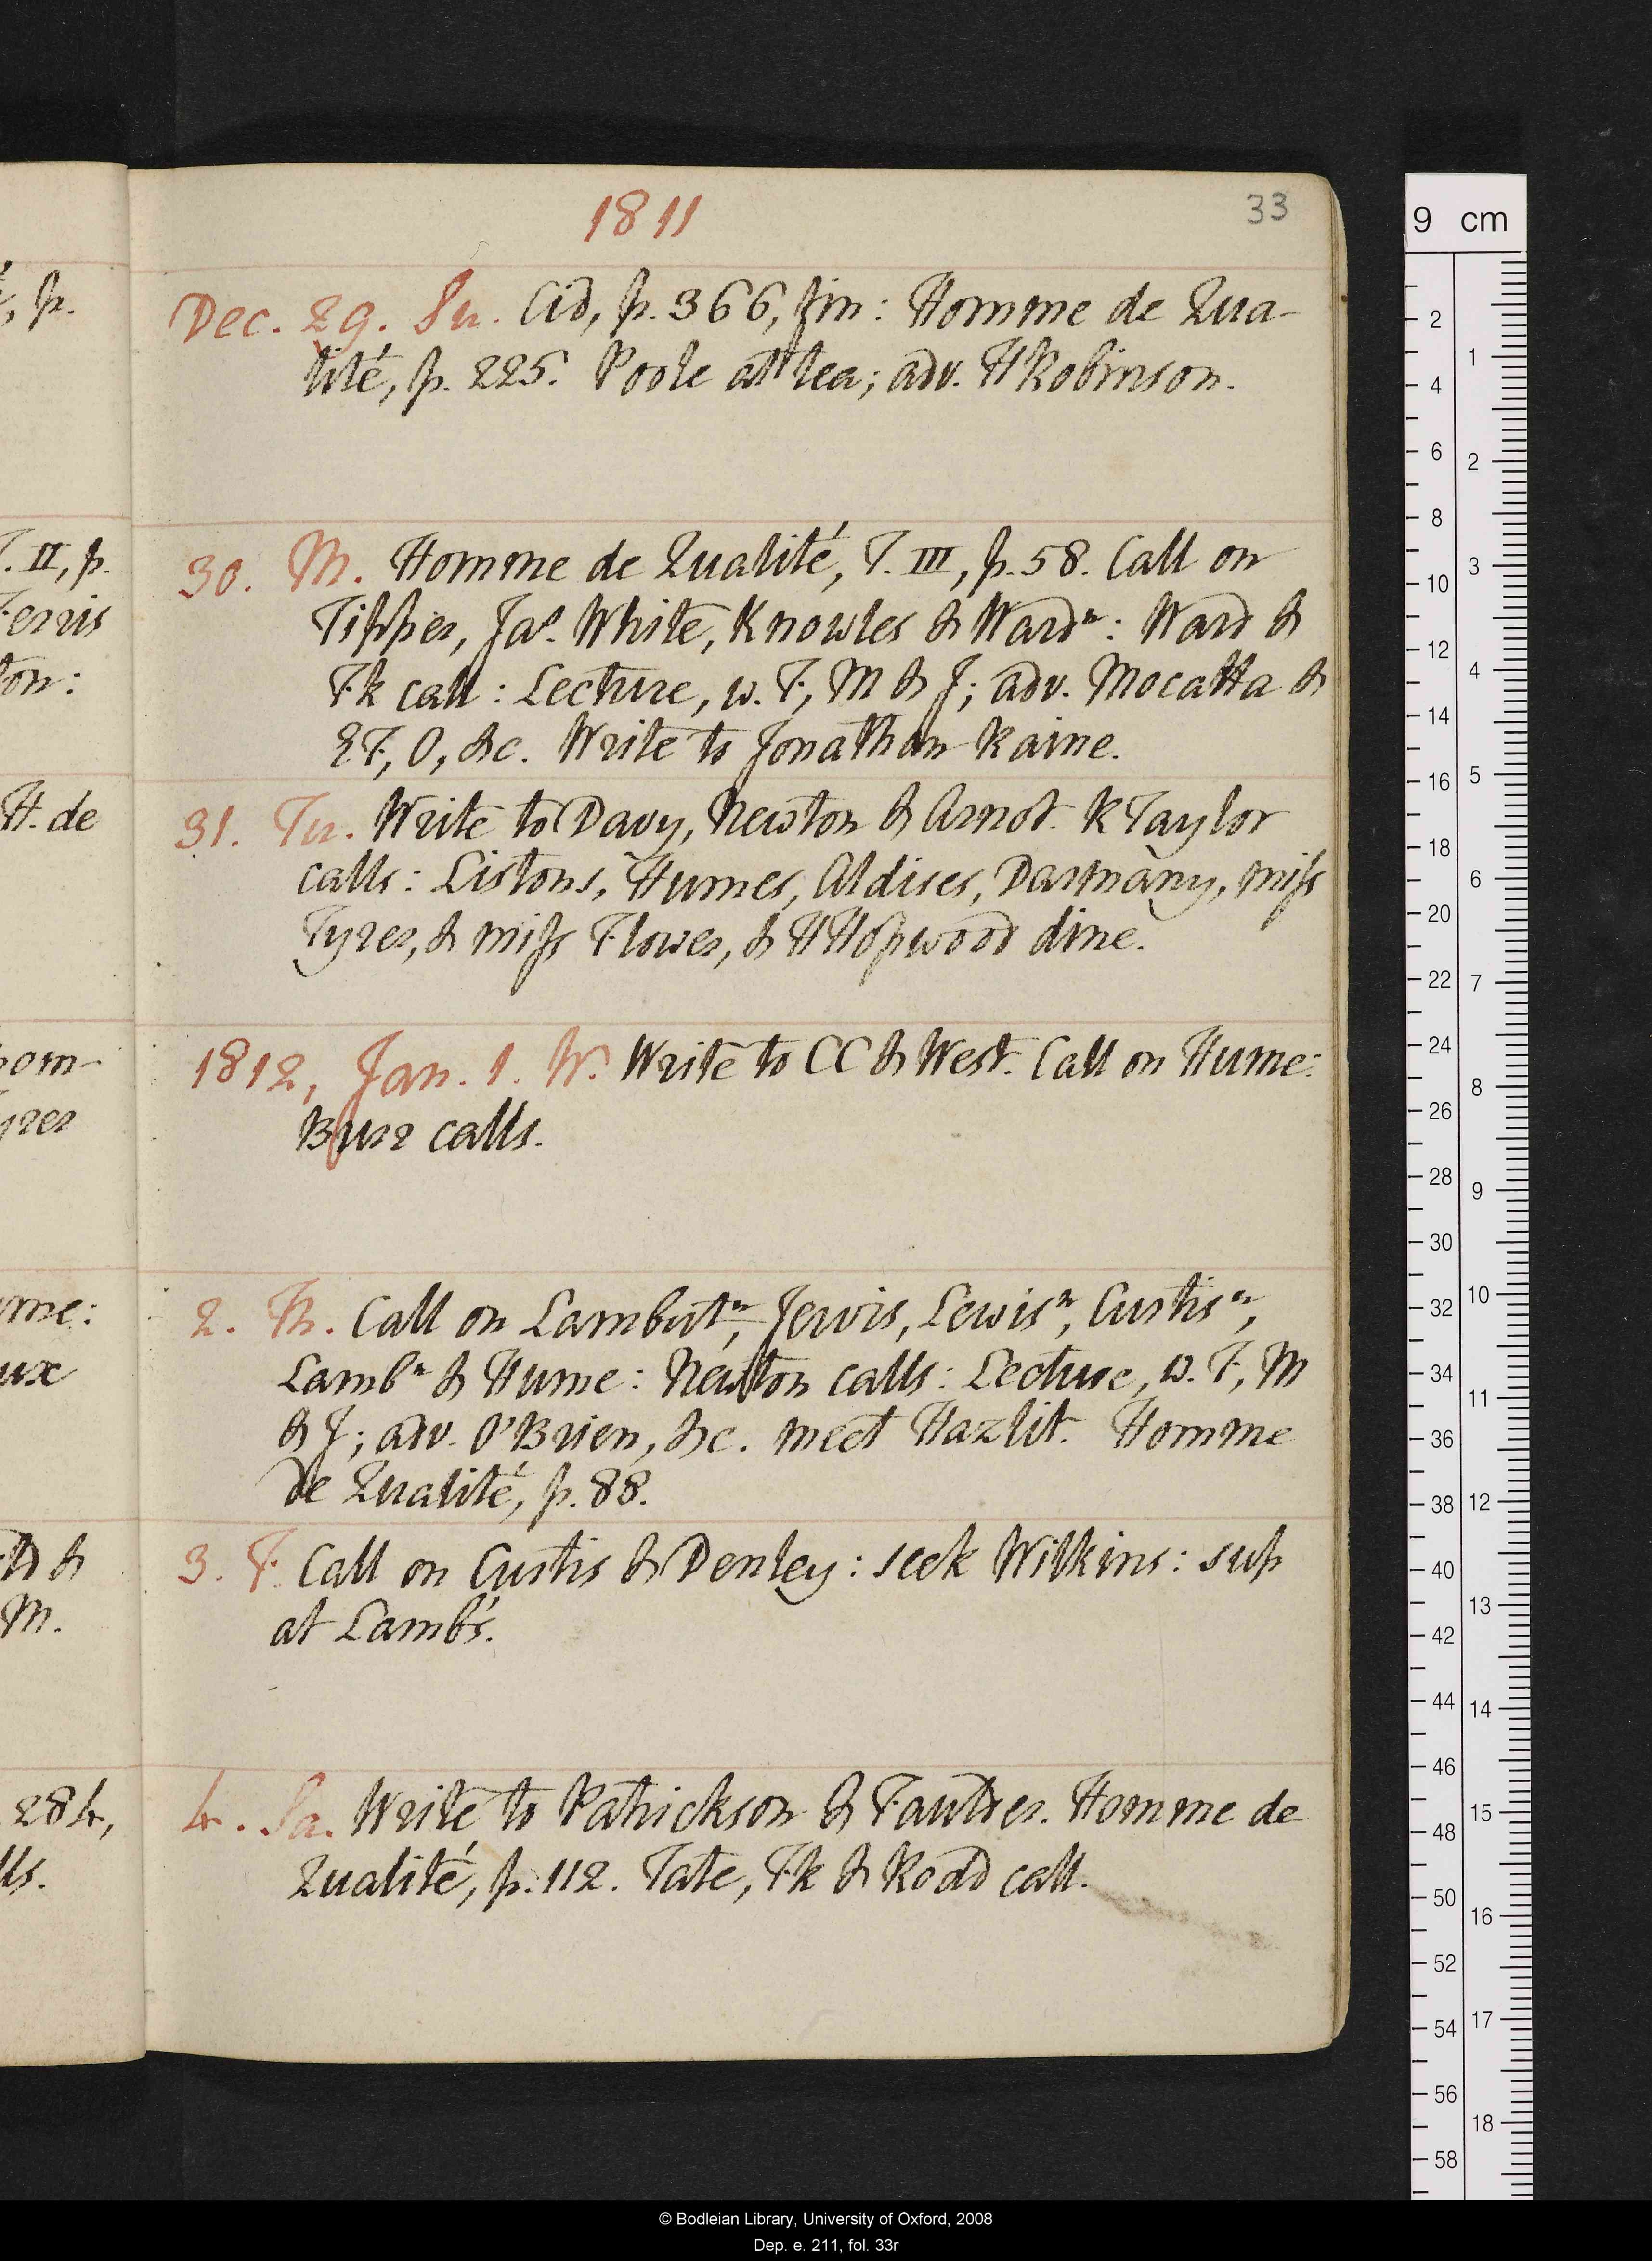 1811
33
Dec. 29. Su. Cid, p. 366, fin: Homme de Qua-
lité, p. 225. Poole at tea; adv. HRobinson.
30. M. Homme de Qualité, T. III, p. 58. Call on
Tipper, Jas. White, Knowles & Wardⁿ: Ward &
Fk call: Lecture, w. F, M & J; adv. Mocatta &
ET, O, &c. Write to Jonathan Raine.
31. Tu. Write to Davy, Newton & Arnot. RTaylor
calls: Listons, Humes, Aldises, Dasmany, miss
Tyrer, & miss Flower, & HHopwood dine.
1812, Jan. 1. W. Write to CC & West. Call on Hume:
Burr calls.
2. Th. Call on Lambertⁿ, Jervis, Lewisⁿ, Curtisⁿ,
Lambⁿ & Hume: Newton calls: Lecture, w. F, M
& J; adv. O'Brien, &c. meet Hazlit. Homme
de Qualité, p. 88.
3. F. Call on Curtis & Denley: seek Wilkins: sup
at Lamb's.
4. Sa. Write to Patrickson & Fauntleroy. Homme de
Qualité, p. 112. Tate, Fk & Rodd call.
, p.
T. II, p.
Ferris
ton:
H. de
hom-
yrer
ume:
ux
&
M.
284,
lls.
9 cm
2
4
6
8
10
12
14
16
18
20
22
24
26
28
30
32
34
36
38
40
42
44
46
48
50
52
54
56
58
1
2
3
4
5
6
7
8
9
10
11
12
13
14
15
16
17
18
© Bodleian Library, University of Oxford, 2008
Dep. e. 211, fol. 33r